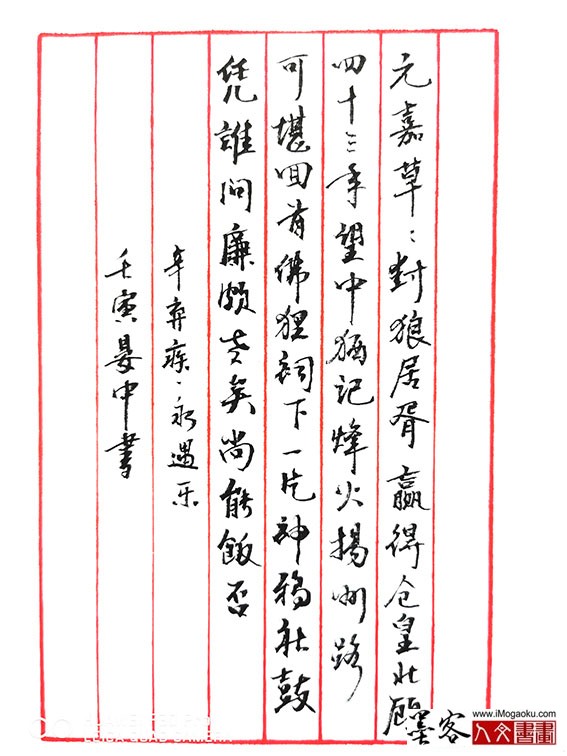 元嘉草：封狼居胥贏得仓皇北顧
四十三年望中猶记烽火揚州路
可堪回首佛狸祠下一片神鸦社鼓
凭誰问廉颇老矣尚能飯否
辛弃疾·永遇乐
壬寅晏中書
墨客
www.iMogaoku.com
人文書畫
LEICA QUAD CAMERA